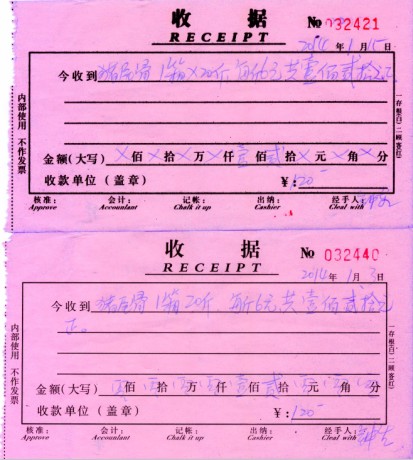 收据 № 032421
RECEIPT
2014年1月15日
今收到 猪尾骨1箱×20斤 每斤6元 共壹佰贰拾元正
金额(大写) ×佰×拾×万×仟壹佰贰拾×元×角×分
收款单位(盖章) ¥:120-
核准: 会计: 记帐: 出纳: 经手人:
Approve Accountant Chalk it up Cashier Cleal with
内部使用 不作发票
(一存根白)(二顾客红)
收据 № 032440
RECEIPT
2014年1月3日
今收到 猪尾骨1箱20斤 每斤6元 共壹佰贰拾元
正。
金额(大写) 佰 拾 万 仟壹佰贰拾 元 角 分
收款单位(盖章) ¥:120-
核准: 会计: 记帐: 出纳: 经手人:
Approve Accountant Chalk it up Cashier Cleal with
内部使用 不作发票
(一存根白)(二顾客红)